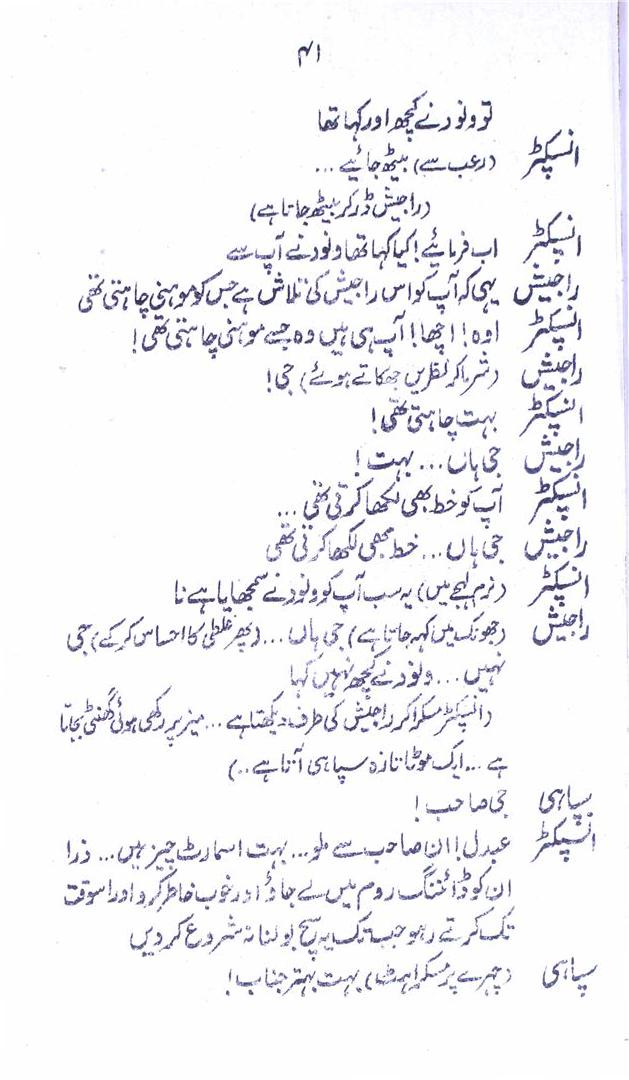 ۴۱
تو ونود نے کچھ اور کہا تھا
انسپکٹر (رعب سے) بیٹھ جائیے ...
(راجیش ڈر کر بیٹھ جاتا ہے)
انسپکٹر اب فرمائیے! کیا کہا تھا ونود نے آپ سے
راجیش یہی کہ آپ کو اس راجیش کی تلاش ہے جس کو موہنی چاہتی تھی
انسپکٹر اوہ! اچھا! آپ ہی ہیں وہ جسے موہنی چاہتی تھی!
راجیش (شرما کر نظریں جھکاتے ہوئے) جی!
انسپکٹر بہت چاہتی تھی!
راجیش جی ہاں ... بہت!
انسپکٹر آپ کو خط بھی لکھا کرتی تھی ...
راجیش جی ہاں ... خط بھی لکھا کرتی تھی
انسپکٹر (نرم لہجے میں) یہ سب آپ کو ونود نے سمجھایا ہے نا
راجیش (جھونک میں کہہ جاتا ہے) جی ہاں ... (پھر غلطی کا احساس کر کے) جی
نہیں ... ونود نے کچھ نہیں کہا
(انسپکٹر مسکرا کر راجیش کی طرف دیکھتا ہے ... میز پر رکھی ہوئی گھنٹی بجاتا
ہے ... ایک موٹا تازہ سپاہی آتا ہے ..)
سپاہی جی صاحب!
انسپکٹر عبدل! ان صاحب سے ملو ... بہت اسمارٹ چیز ہیں ... ذرا
ان کو ڈائننگ روم میں لے جاؤ اور خوب خاطر کرو اور اسوقت
تک کرتے رہو جب تک یہ سچ بولنا نہ شروع کر دیں
سپاہی (چہرے پر مسکراہٹ) بہت بہتر جناب!